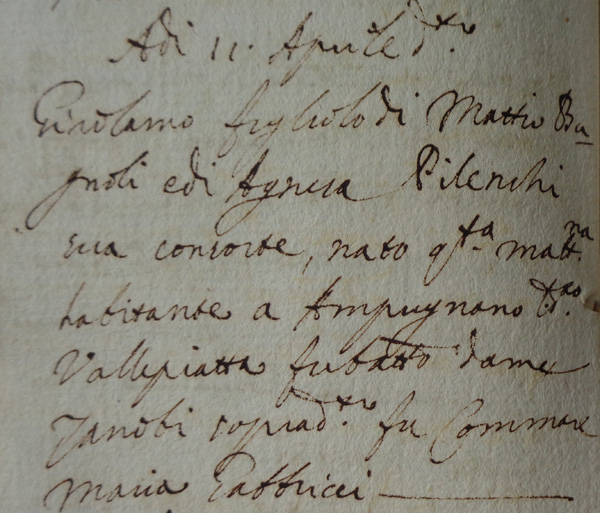 Adi 11. Aprile d.to
Girolamo figliolo di Mattio Ba_
gnoli e di Agnesa Pilenchi
sua consorte, nato q.ta matt.na
habitante a Ampugnano
Vallepiatta fu batto da me
Zanobi soprad.to fu Commare
Maria Gabbrieli